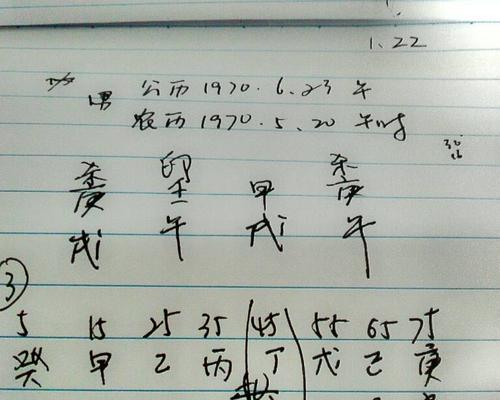 1.22
男 公历 1970.6.23 午
农历 1970.5.20 午时
杀 印 杀
庚 壬 甲 庚
戌 午 戌 午
③
5 15 25 35 45 55 65 75
癸 甲 乙 丙 丁 戊 己 庚